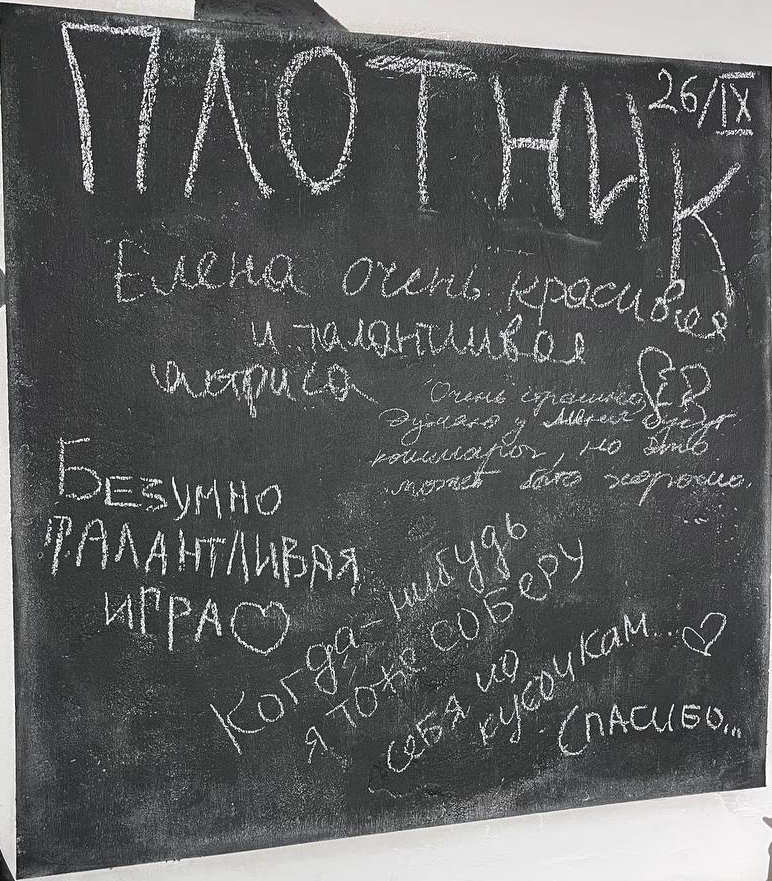 ПЛОТНИК
26/IX
Елена очень красивая
и талантливая
актриса
Очень страшно
Думаю у меня будут
кошмары, но это
может быть хорошо.
БЕЗУМНО
ТАЛАНТЛИВАЯ
ИГРА
Когда-нибудь
я тоже СОБЕРУ
СЕБЯ ПО
кусочкам...
СПАСИБО...